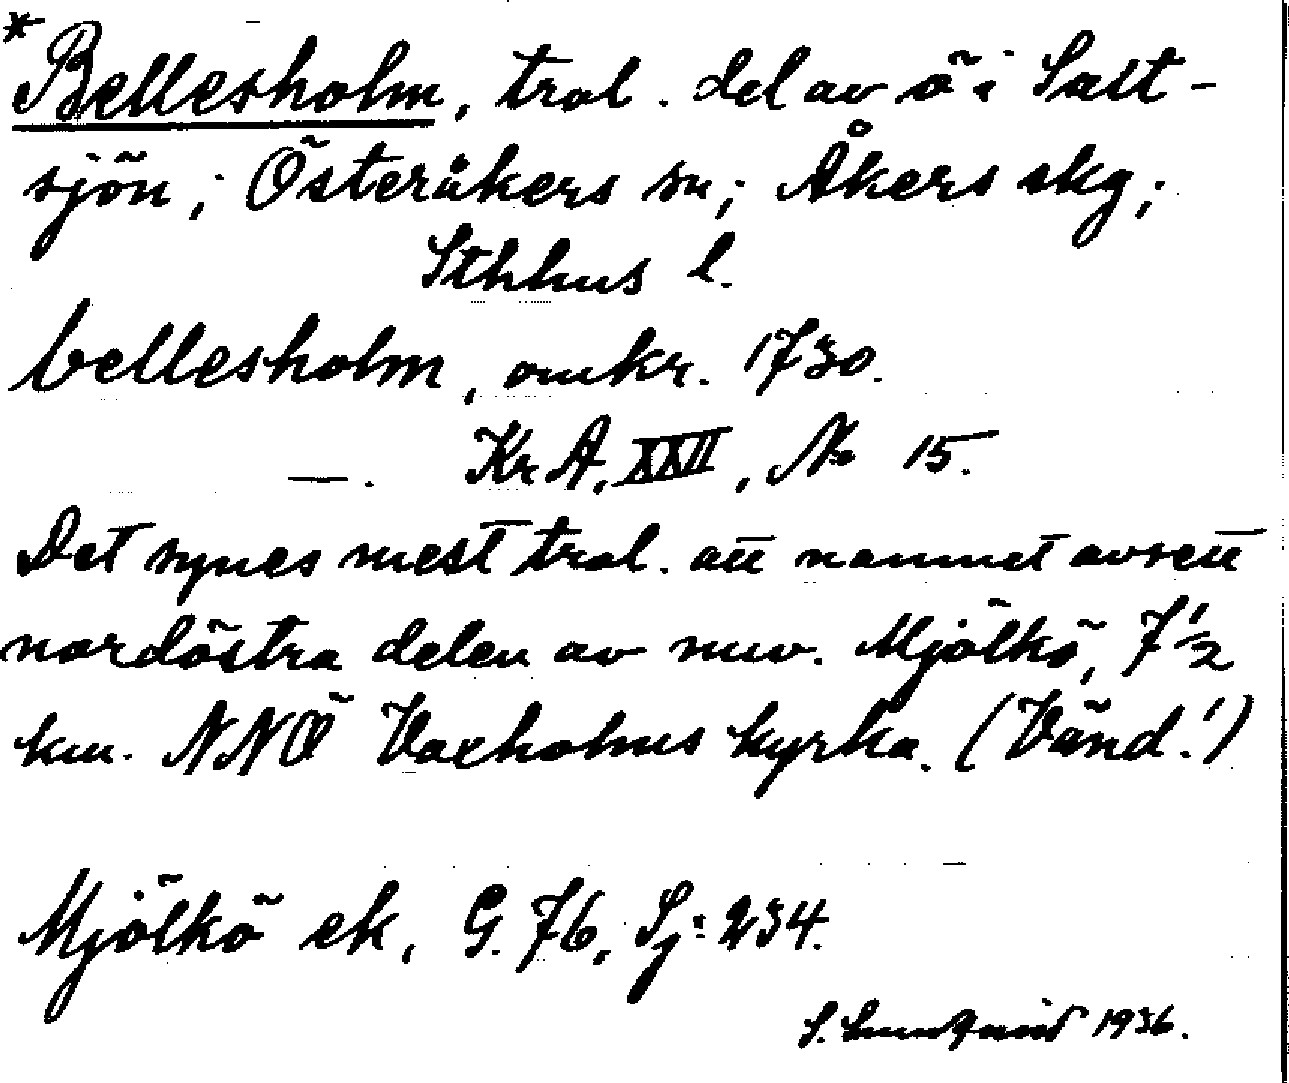 *Bellesholm, trol. del av ö i Salt-
sjön; Österåkers sn; Åkers skg;
Sthlms l.
bellesholm, omkr. 1730.
—. KrA, XXII, № 15.
Det synes mest trol. att namnet avsett
nordöstra delen av nuv. Mjölkö, 7½
km. NNÖ Vaxholms kyrka. (Vänd!)
Mjölkö ek, G. 76, Sj: 234.
S. 1936.